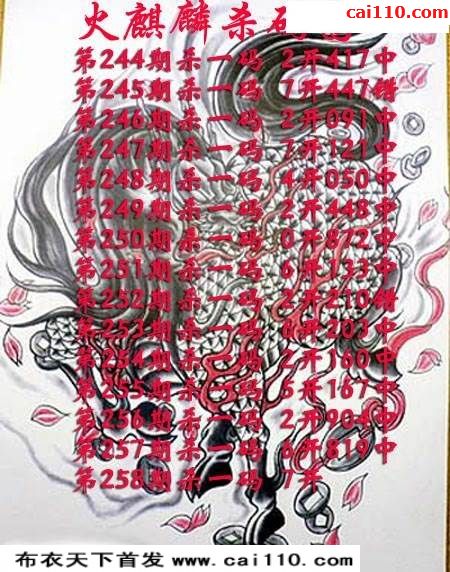 http://www.
cai110.com
火麒麟杀码
第244期杀一码 2开417中
第245期杀一码 7开447错
第246期杀一码 2开091中
第247期杀一码 7开121中
第248期杀一码 4开050中
第249期杀一码 2开448中
第250期杀一码 0开872中
第251期杀一码 6开133中
第252期杀一码 2开210错
第253期杀一码 8开203中
第254期杀一码 2开160中
第255期杀一码 5开167中
第256期杀一码 2开904中
第257期杀一码 6开819中
第258期杀一码 7开
布衣天下首发 www.cai110.com